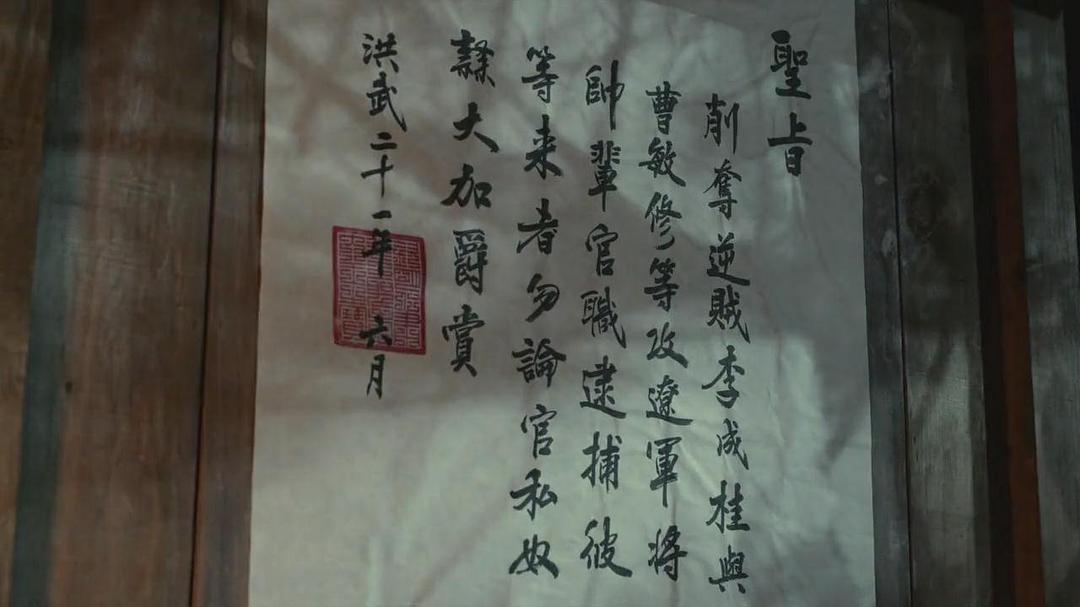 聖旨
削奪逆賊李成桂與
曹敏修等攻遼軍將
帥輩官職逮捕彼
等来者勿論官私奴
隸大加爵賞
洪武二十一年六月